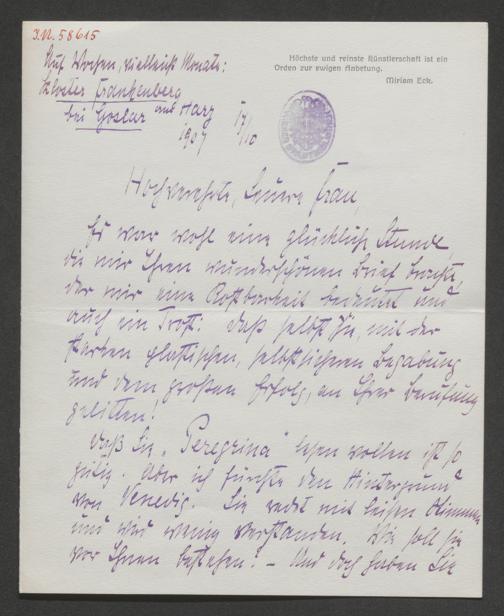 I.N. 58615
Auf Wochen, vielleicht Monate:
Kloster Frankenberg
bei Goslar am Harz
1907 17/10
Höchste und reinste Künstlerschaft ist ein
Orden zur ewigen Anbetung.
Miriam Eck.
Hochverehrte, teuere Frau,
Es war wohl eine glückliche Stunde,
die mir Ihren wunderschönen Brief brachte,
der mir eine Kostbarkeit bedeutet und
auch ein Trost: daß selbst Sie, mit der
starken plastischen, selbstsicheren Begabung
und dem großen Erfolg, an Ihrer Berufung
gelitten!
Daß Sie „Peregrina“ lesen wollen ist so
gütig. Aber ich fürchte den Hintergrund
von Venedig. Sie redet mit leisen Stimmen
und wird wenig verstanden. Wie soll sie
vor Ihnen bestehen! – Und doch haben Sie